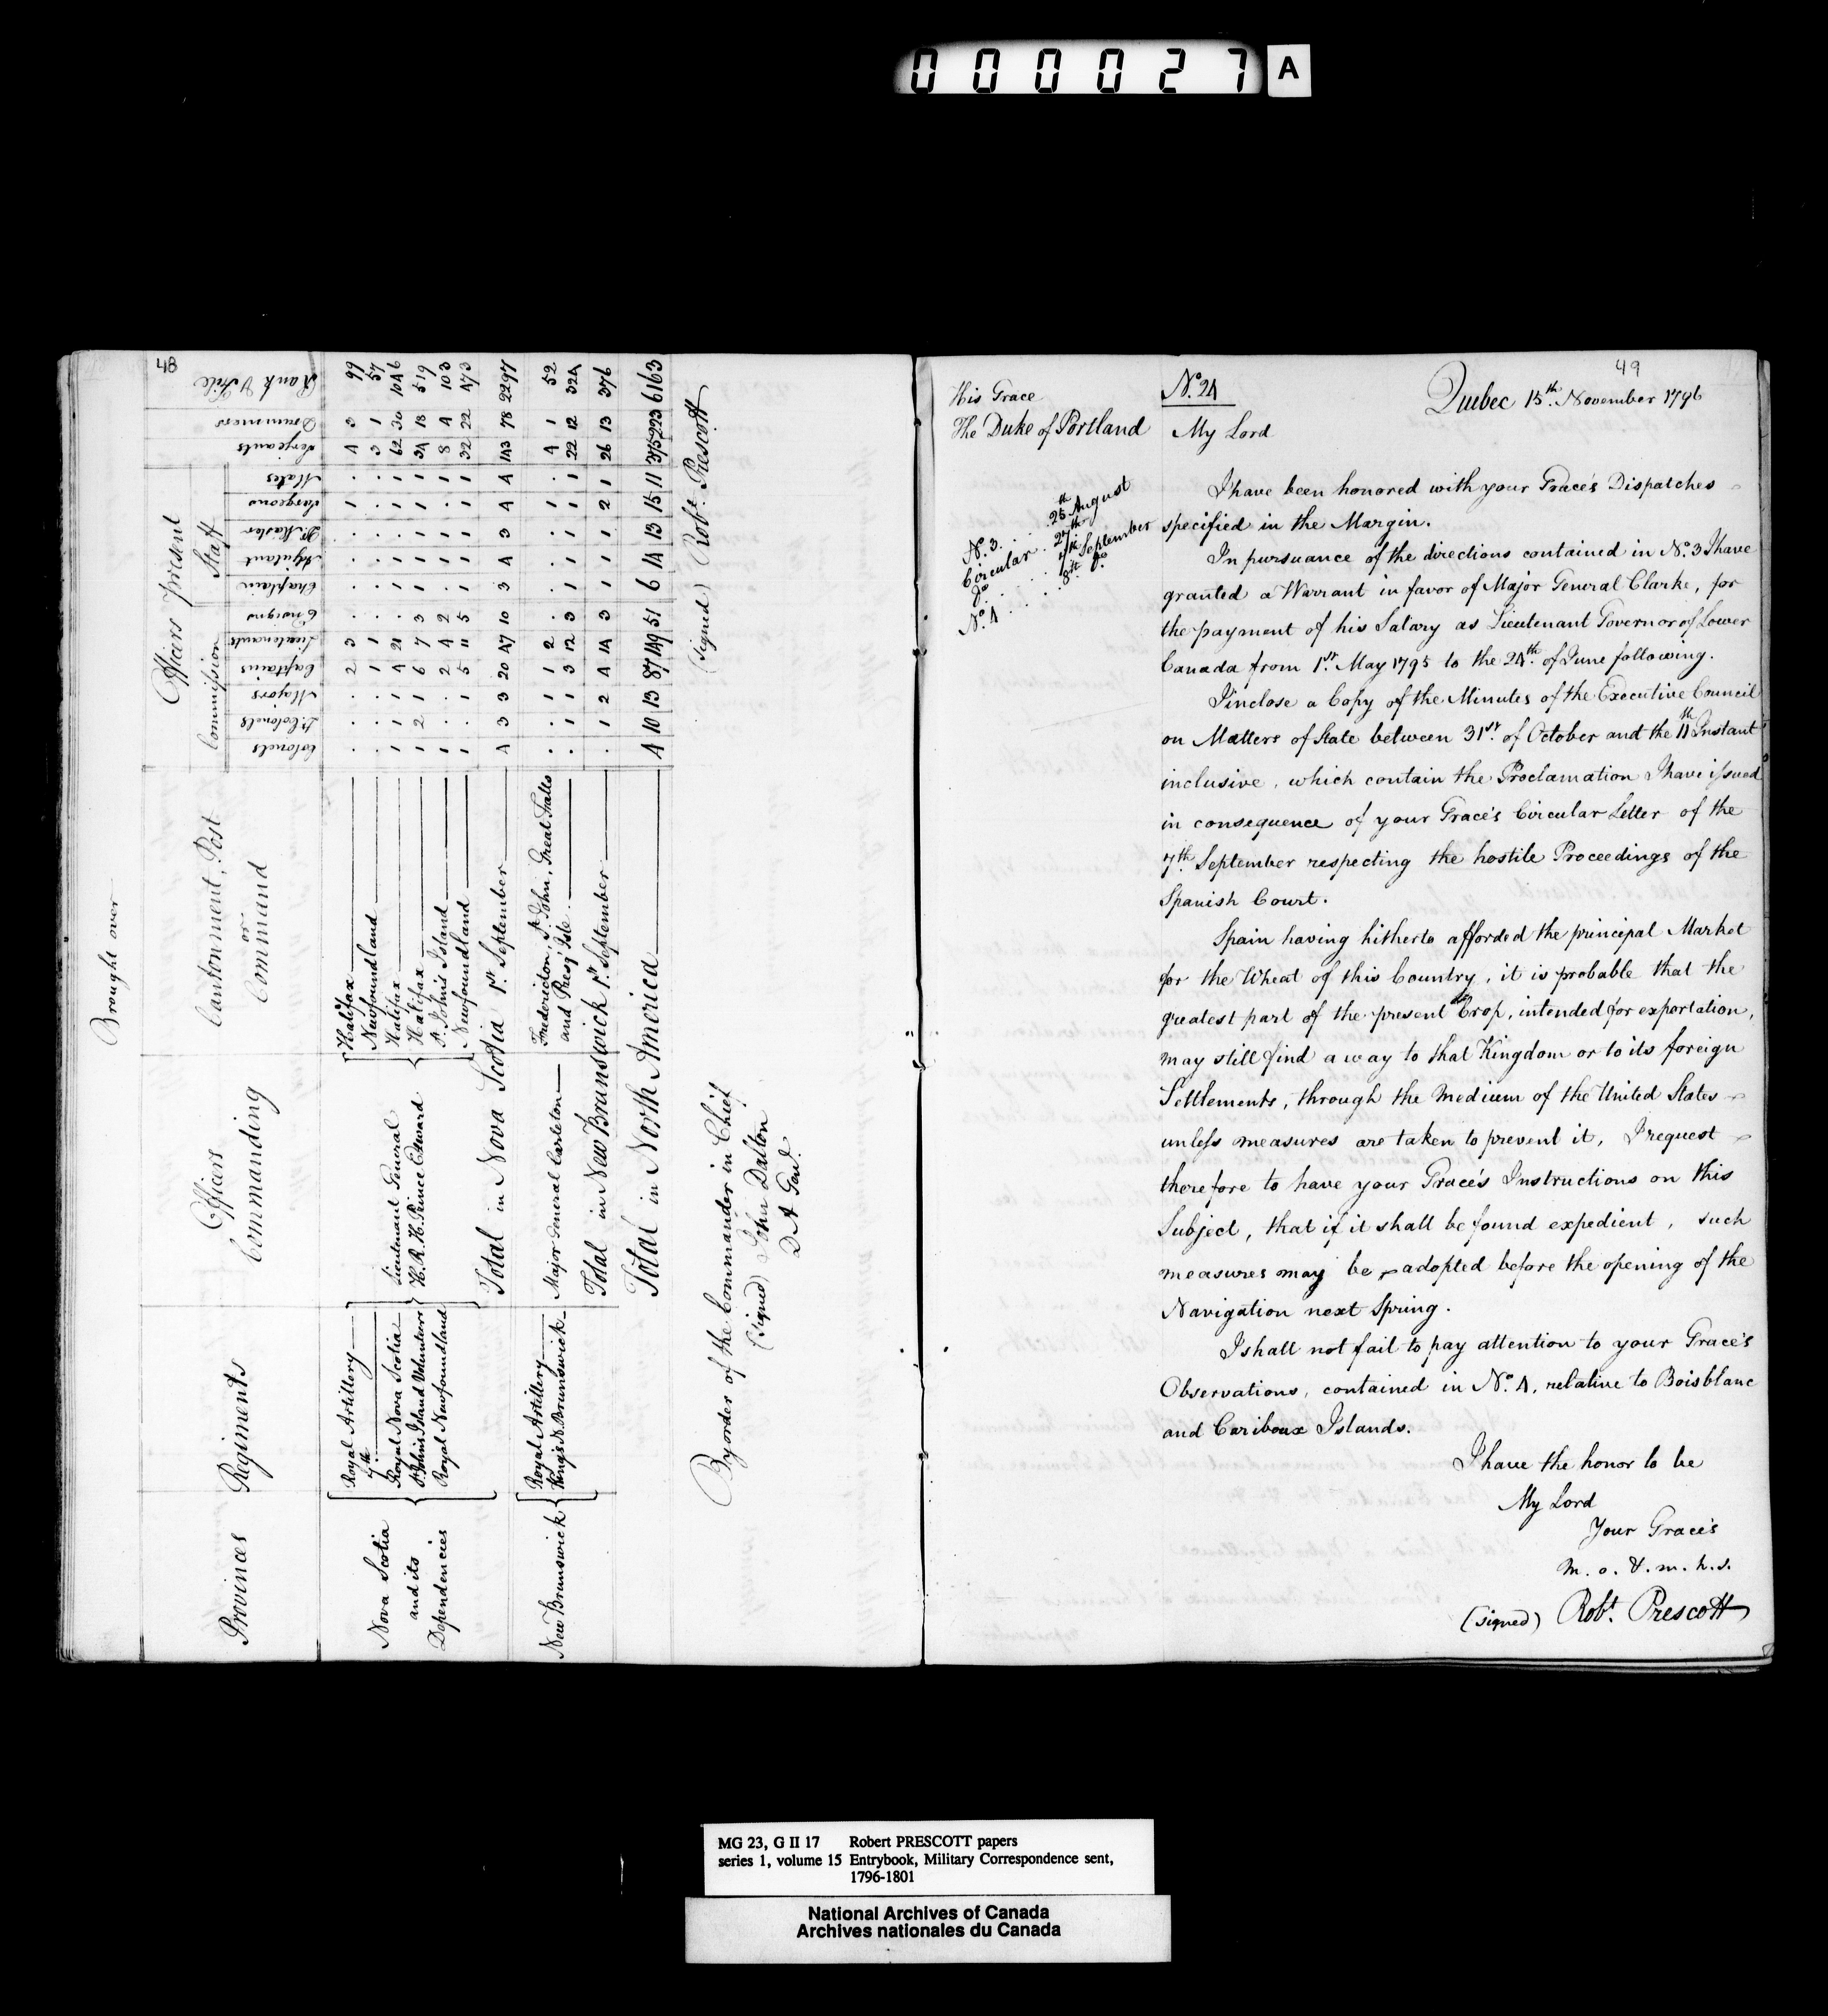 000027 A
48
Brought over
Provinces Regiments Officers Commanding Cantonment, Post or Command Officers present
Commission Staff
Colonels Lt. Colonels Majors Captains Lieutenants Ensigns Chaplain Adjutant Qr. Master Surgeons Mates Serjeants Drummers Rank & File
Nova Scotia and its Dependencies
Lieutenant General
H.R.H. Prince Edward
Royal Artillery Halifax . . . 2 3 . . . . 1 . 4 3 99
7th Newfoundland . . . 1 1 . . . . . . 3 1 57
Halifax 1 1 1 4 21 . 1 1 1 1 1 62 30 1046
Royal Nova Scotia Halifax 1 2 1 6 7 3 1 1 1 1 1 34 18 519
St. John's Island Volunteers St. John's Island 1 . . 2 4 2 . 1 . . 1 8 4 103
Royal Newfoundland Newfoundland 1 . 1 5 11 5 1 1 1 1 1 32 22 473
Total in Nova Scotia 1st. September 4 3 3 20 47 10 3 4 3 4 4 143 78 2297
New Brunswick
Royal Artillery Major General Carleton Fredericton, St. John, Great Falls . . 1 1 2 . . . . 1 . 4 1 52
King's N. Brunswick and Presq' Isle . 1 1 3 12 3 1 1 1 1 1 22 12 324
Total in New Brunswick 1st. September . 1 2 4 14 3 1 1 1 2 1 26 13 376
Total in North America 4 10 13 87 149 51 6 14 13 15 11 375 223 6163
By order of the Commander in Chief
(signed) John Dalton
D A Genl.
(signed) Robt. Prescott
49
His Grace
The Duke of Portland
No. 24
Quebec 15th. November 1796
My Lord
No. 3 . . . 25th August
Circular . . 27th
Do . . . 7th September
No. 4 . . . 8th do
I have been honored with your Grace's Dispatches
specified in the Margin.
In pursuance of the directions contained in No. 3 I have
granted a Warrant in favor of Major General Clarke, for
the payment of his Salary as Lieutenant Governor of Lower
Canada from 1st. May 1795 to the 24th. of June following.
I inclose a Copy of the Minutes of the Executive Council
on Matters of State between 31st. of October and the 11th Instant
inclusive, which contain the Proclamation I have issued
in consequence of your Grace's Circular Letter of the
7th. September respecting the hostile Proceedings of the
Spanish Court.
Spain having hitherto afforded the principal Market
for the Wheat of this Country, it is probable that the
greatest part of the present Crop, intended for exportation,
may still find a way to that Kingdom or to its foreign
Settlements, through the Medium of the United States
unless measures are taken to prevent it, I request
therefore to have your Grace's Instructions on this
Subject, that if it shall be found expedient, such
measures may be adopted before the opening of the
Navigation next Spring.
I shall not fail to pay attention to your Grace's
Observations, contained in No. 4, relative to Boisblanc
and Cariboux Islands.
I have the honor to be
My Lord
Your Grace's
m. o. & m. h. s.
(signed) Robt. Prescott
MG 23, G II 17 Robert PRESCOTT papers
series 1, volume 15 Entrybook, Military Correspondence sent,
1796-1801
National Archives of Canada
Archives nationales du Canada